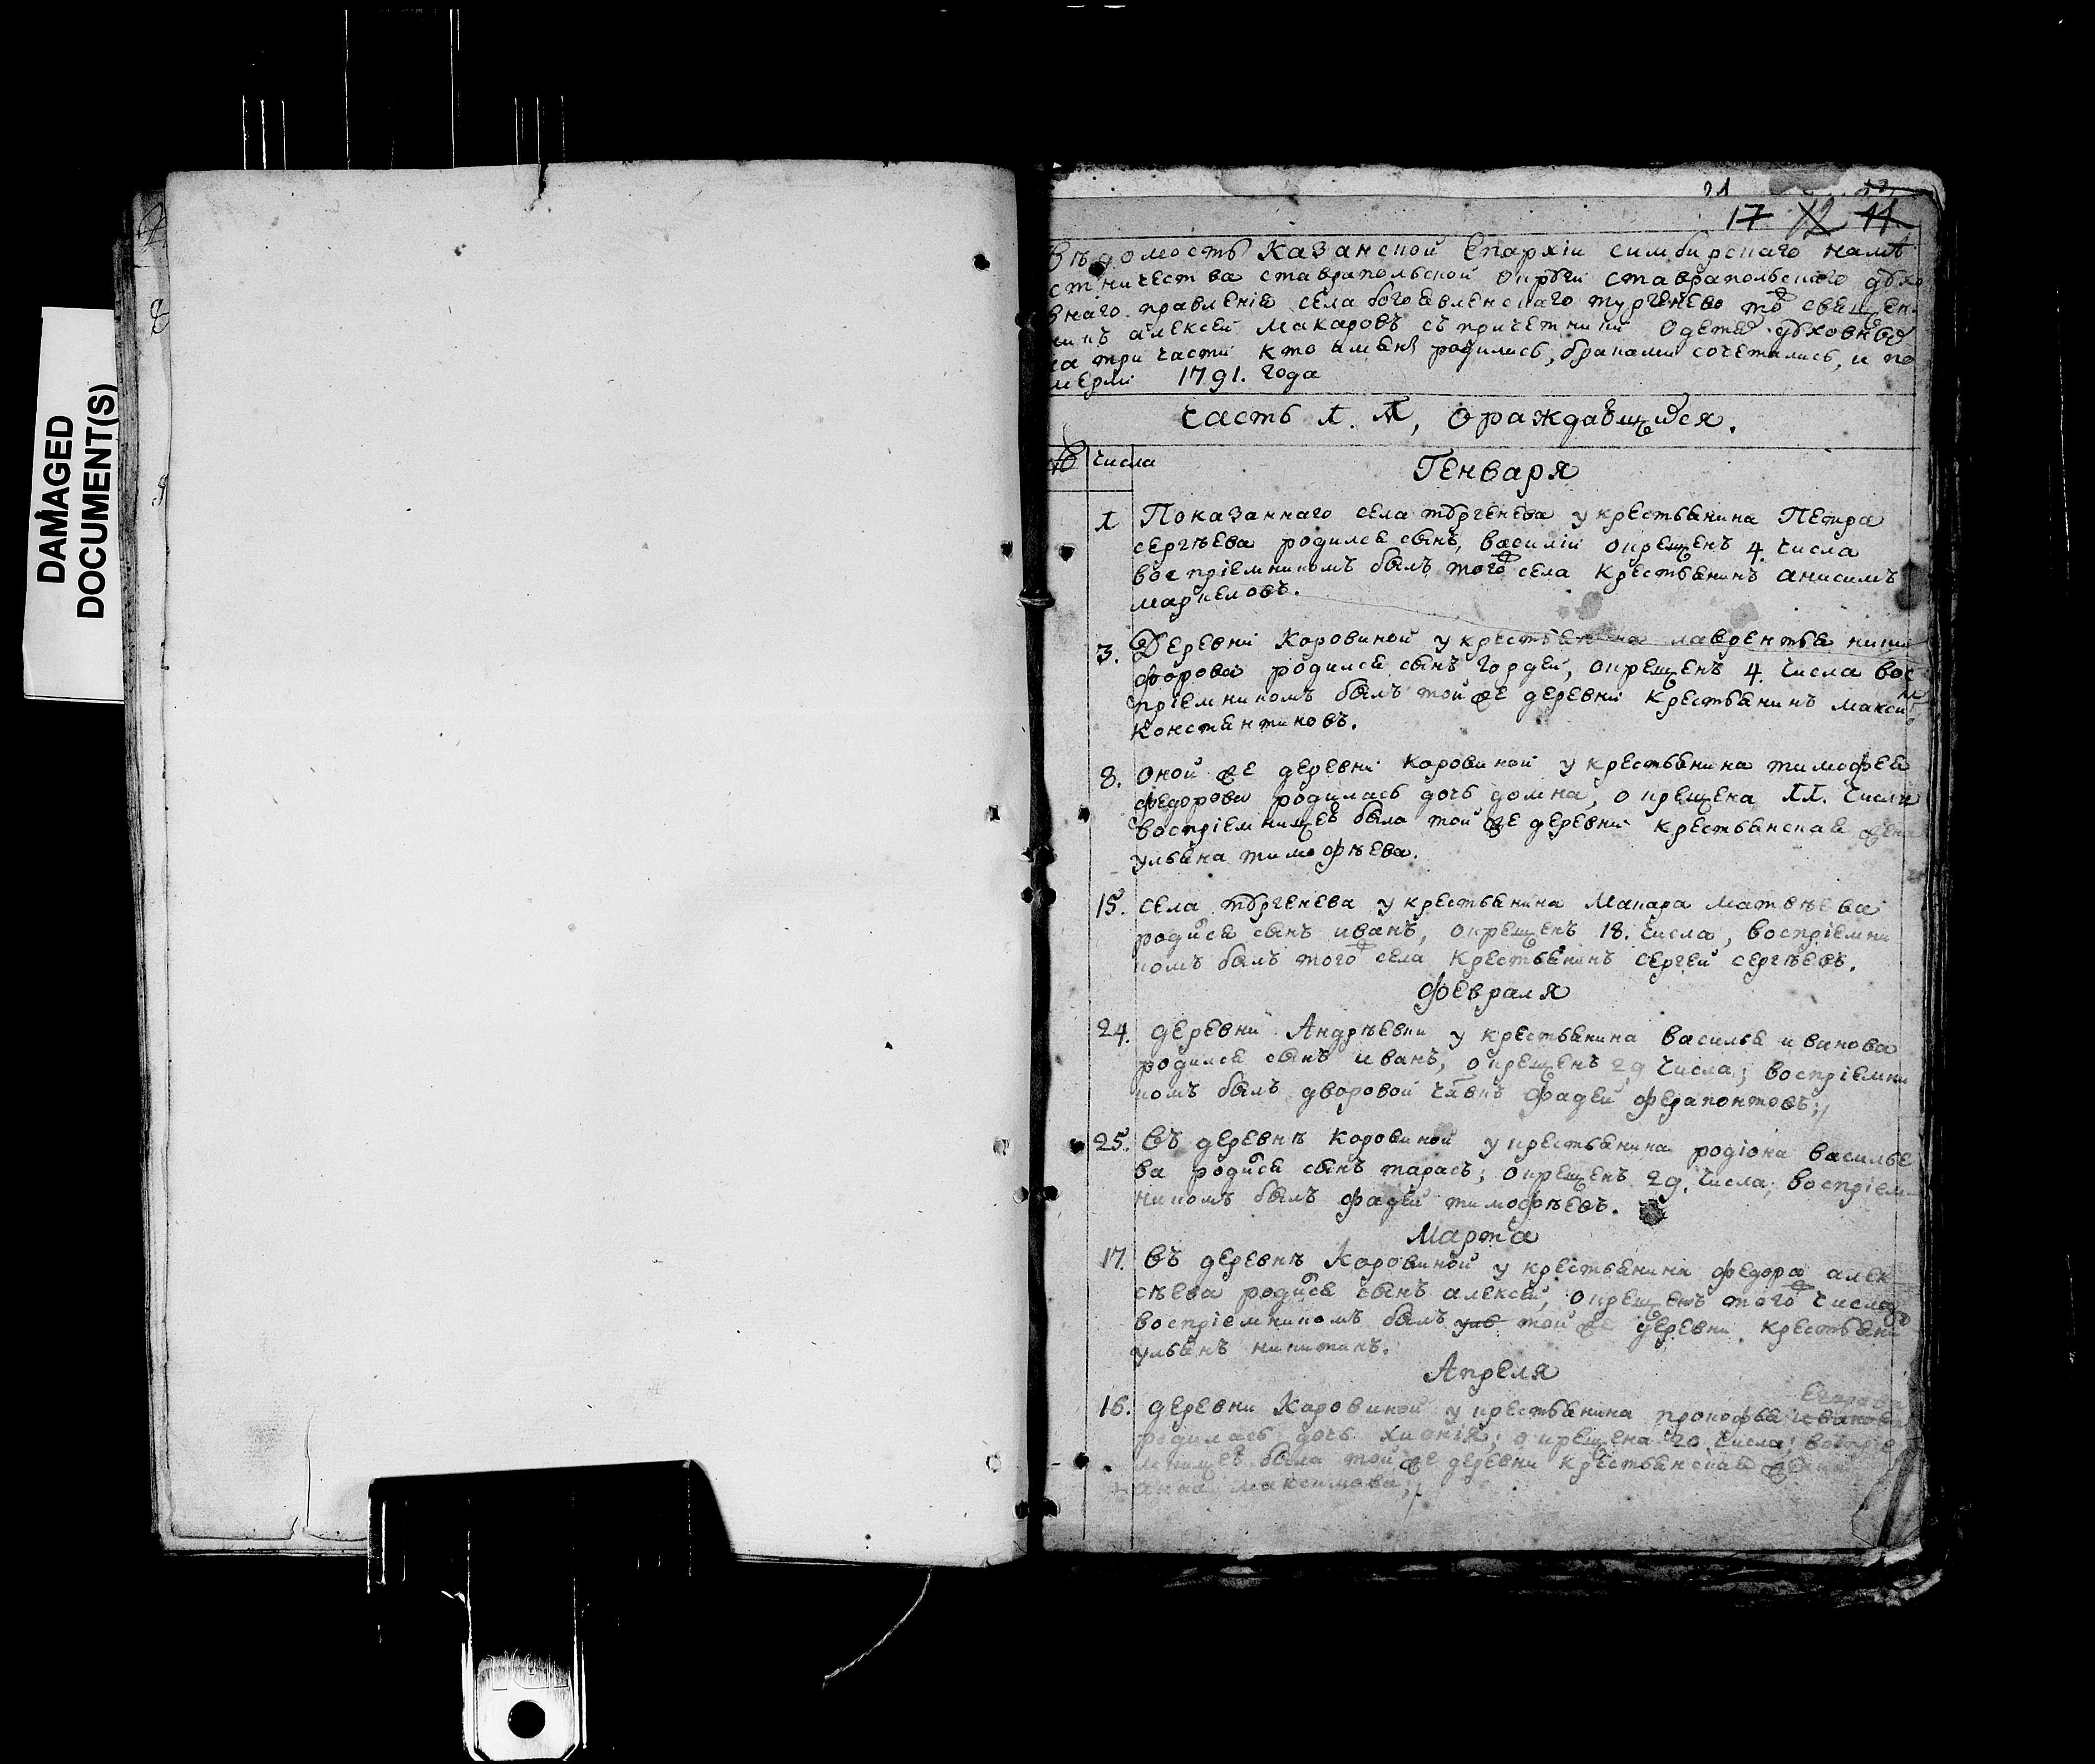 DAMAGED
DOCUMENT(S)
21
17 12 11
Вѣдомость Казанской Епархіи симбирскаго намѣ
стничества ставрапольской округи ставрапольскаго духо
внаго правленія села богоявленскаго тургенево тож священ
никъ алексей Макаровъ съ причетники
на три части кто имянъ родились, браками сочетались, и по
мерли 1791. года
Часть 1. я, о раждающихся.
№ числа
Генваря
1 Показаннаго села тургенева у крестьянина Петра
сергѣева родился сынъ, василіи окрещенъ 4. числа
воспріемникомъ былъ того ж села крестьянинъ анисимъ
маркеловъ.
3. Деревни Коровиной у крестьянина лаврентья ники
форова родился сынъ гордей, окрещенъ 4. числа вос
пріемникомъ былъ той же деревни крестьянинъ макси м
констянтиновъ.
8. оной же деревни коровиной у крестьянина тимофея
федорова родилась дочь домна, окрещена 11. числа
воспріемницею была той же деревни крестьянская жена
ульяна тимофѣева.
15. села тургенева у крестьянина Макара матвѣева
родился сынъ иванъ, окрещенъ 18. числа, воспріемни
комъ былъ того ж села крестьянинъ сергей сергѣевъ.
Февраля
24. деревни Андрѣевки у крестьянина василья иванова
родился сынъ иванъ, окрещенъ 29 числа; воспріемни
комъ былъ дворовой члвкъ фадей ферапонтовъ;
25. Въ деревнѣ коровиной у крестьянина родіона василье
ва родился сынъ тарасъ; окрещенъ 29. числа; воспріем
никомъ былъ фадей тимофѣевъ.
Марта
17. Въ деревнѣ Коровиной у крестьянина федора алек
сѣева родился сынъ алексей, окрещенъ того ж числа
воспріемникомъ былъ уль той же деревни крестьяни
ульянъ никитинъ.
Апреля
16. деревни Коровиной у крестьянина прокофья иванова
родилась дочь хионія; окрещена 20 числа; воспріе
мницею была той же деревни крестьянская жена
анна максимова;